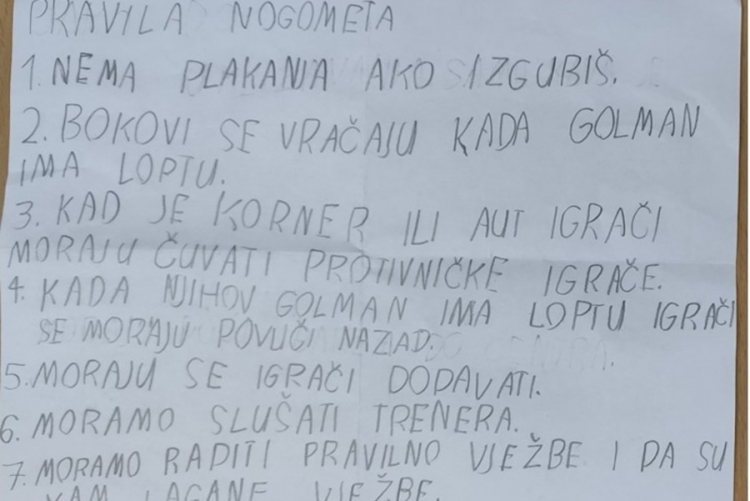 PRAVILA NOGOMETA
1. NEMA PLAKANJA AKO IZGUBIŠ.
2. BOKOVI SE VRAČAJU KADA GOLMAN
IMA LOPTU.
3. KAD JE KORNER ILI AUT IGRAČI
MORAJU ČUVATI PROTIVNIČKE IGRAČE.
4. KADA NJIHOV GOLMAN IMA LOPTU IGRAČI
SE MORAJU POVUČI NAZIAD.
5. MORAJU SE IGRAČI DODAVATI.
6. MORAMO SLUŠATI TRENERA.
7. MORAMO RADITI PRAVILNO VJEŽBE I DA SU
VAM LAGANE VJEŽBE.